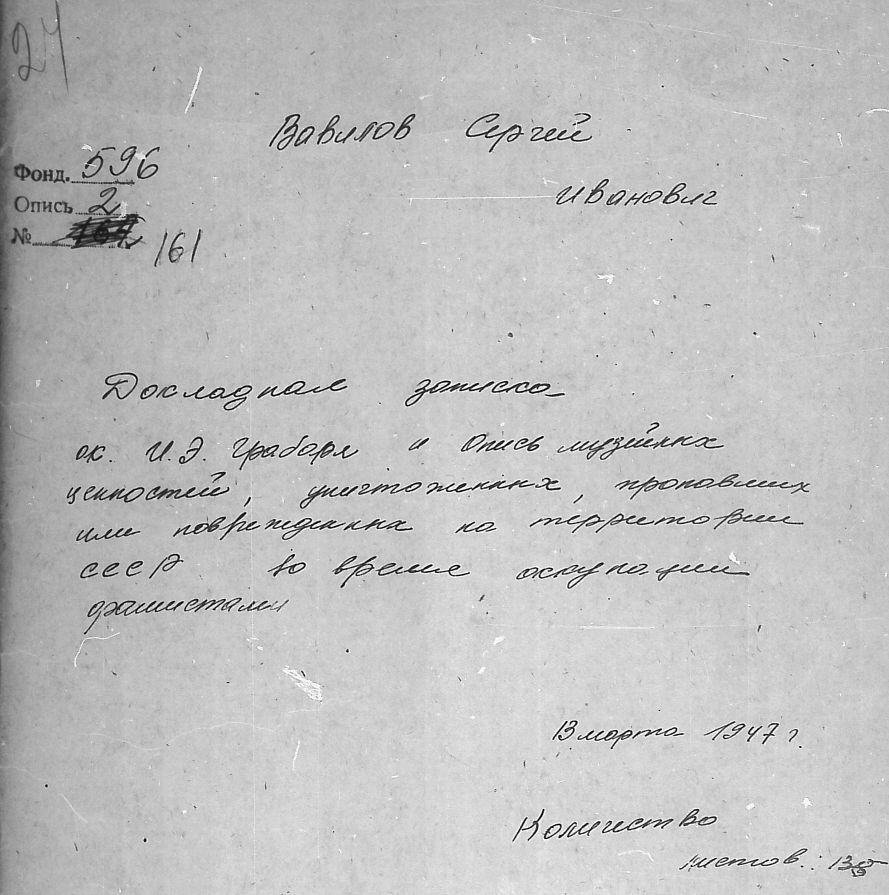 24
Вавилов Сергей
Иванович
Фонд. 596
Опись 2
№ 161
Докладная записка
ак. И.Э. Грабаря и опись музейных
ценностей, уничтоженных, пропавших
или поврежденных на территории
СССР во время оккупации
фашистами
13 марта 1947 г.
Количество
листов: